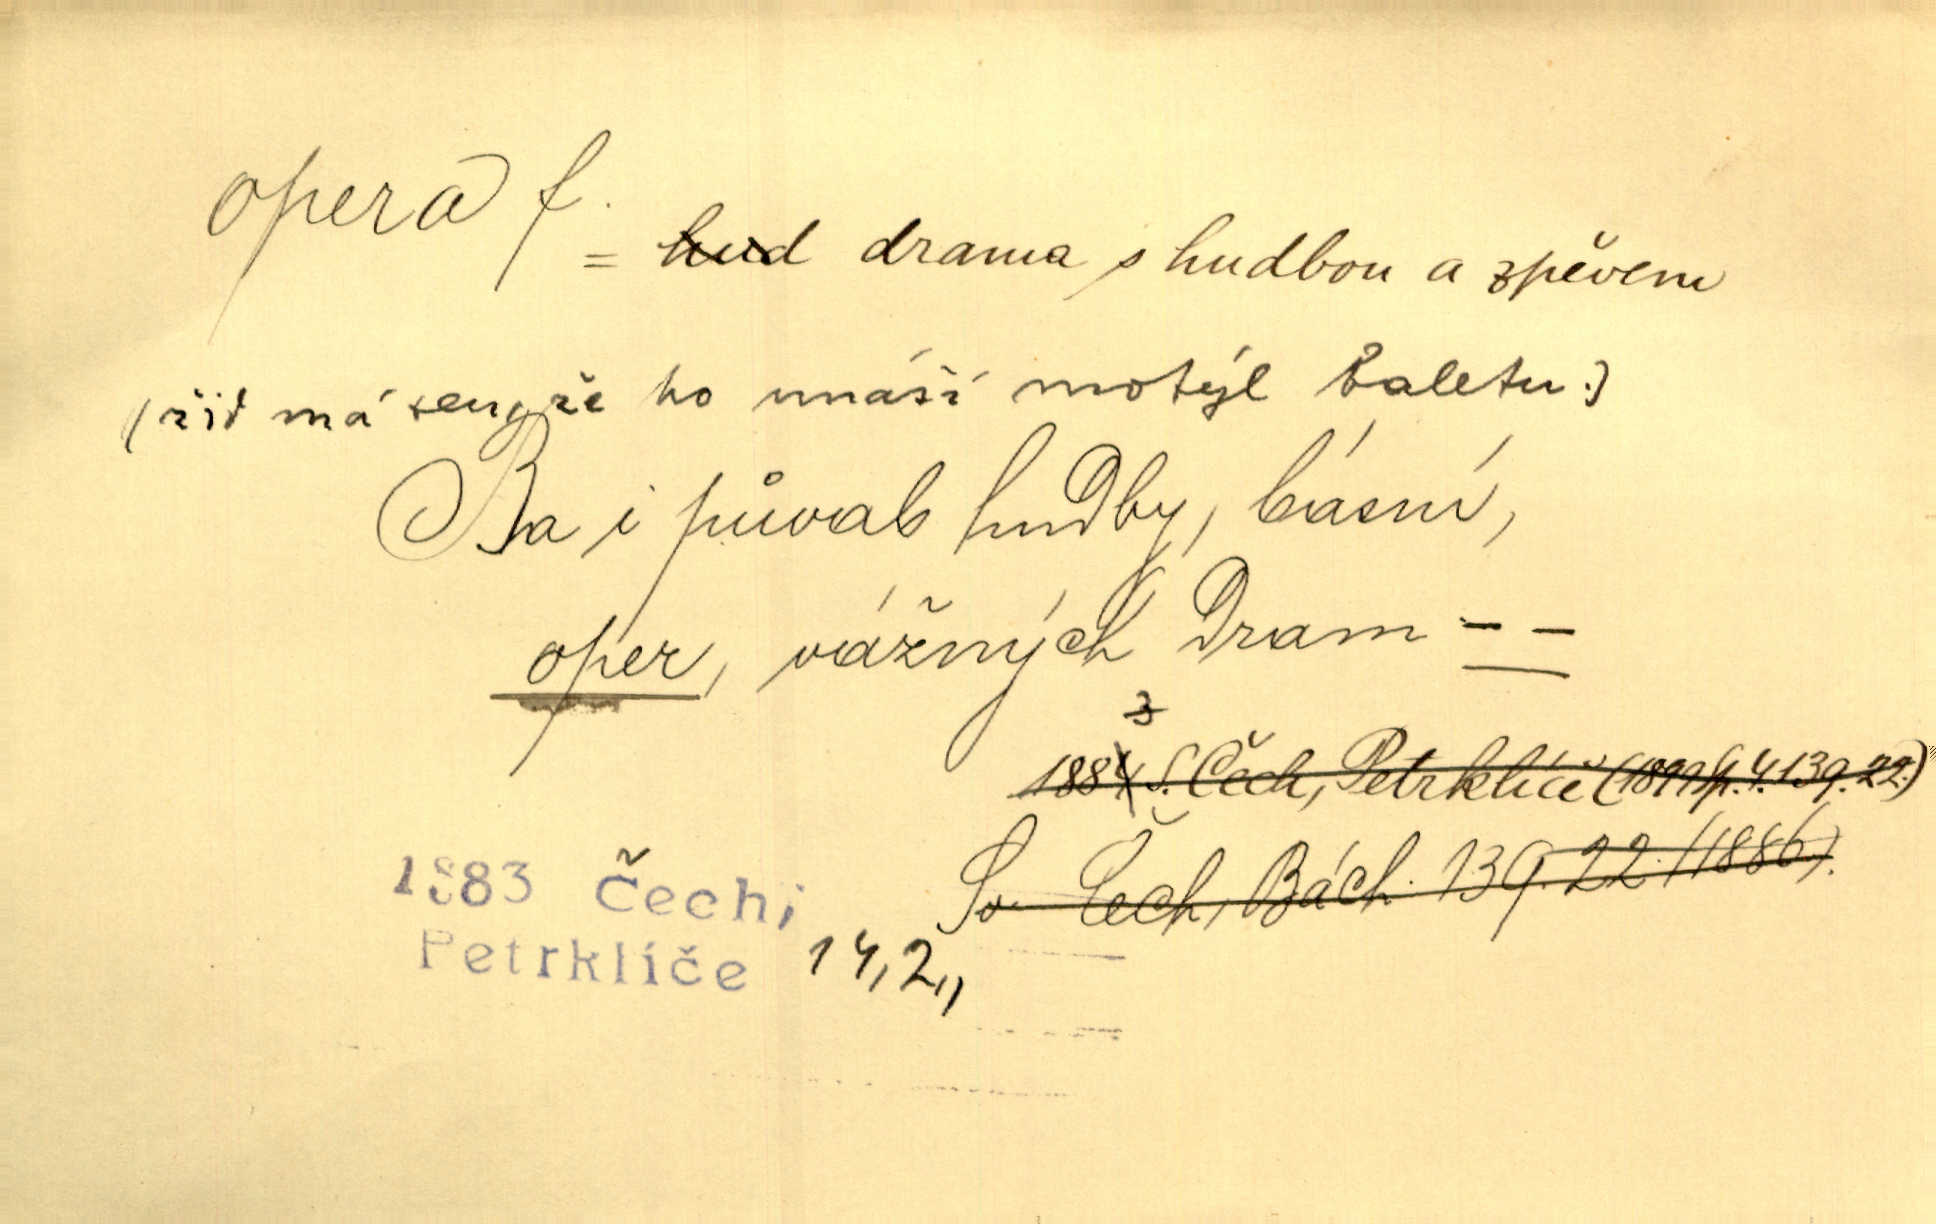 opera f.
= hud drama s hudbou a zpěvem
(žid má sen, že ho unáší motýl baletu:)
Ba i půvab hudby, básní,
oper, vážných dram – –
3
1884 S. Čech, Petrklíče (1899 Sp. 4. 139. 22.)
Sv. Čech, Bách. 139. 22. (1886).
1883 Čech;
Petrklíče 14,2,,